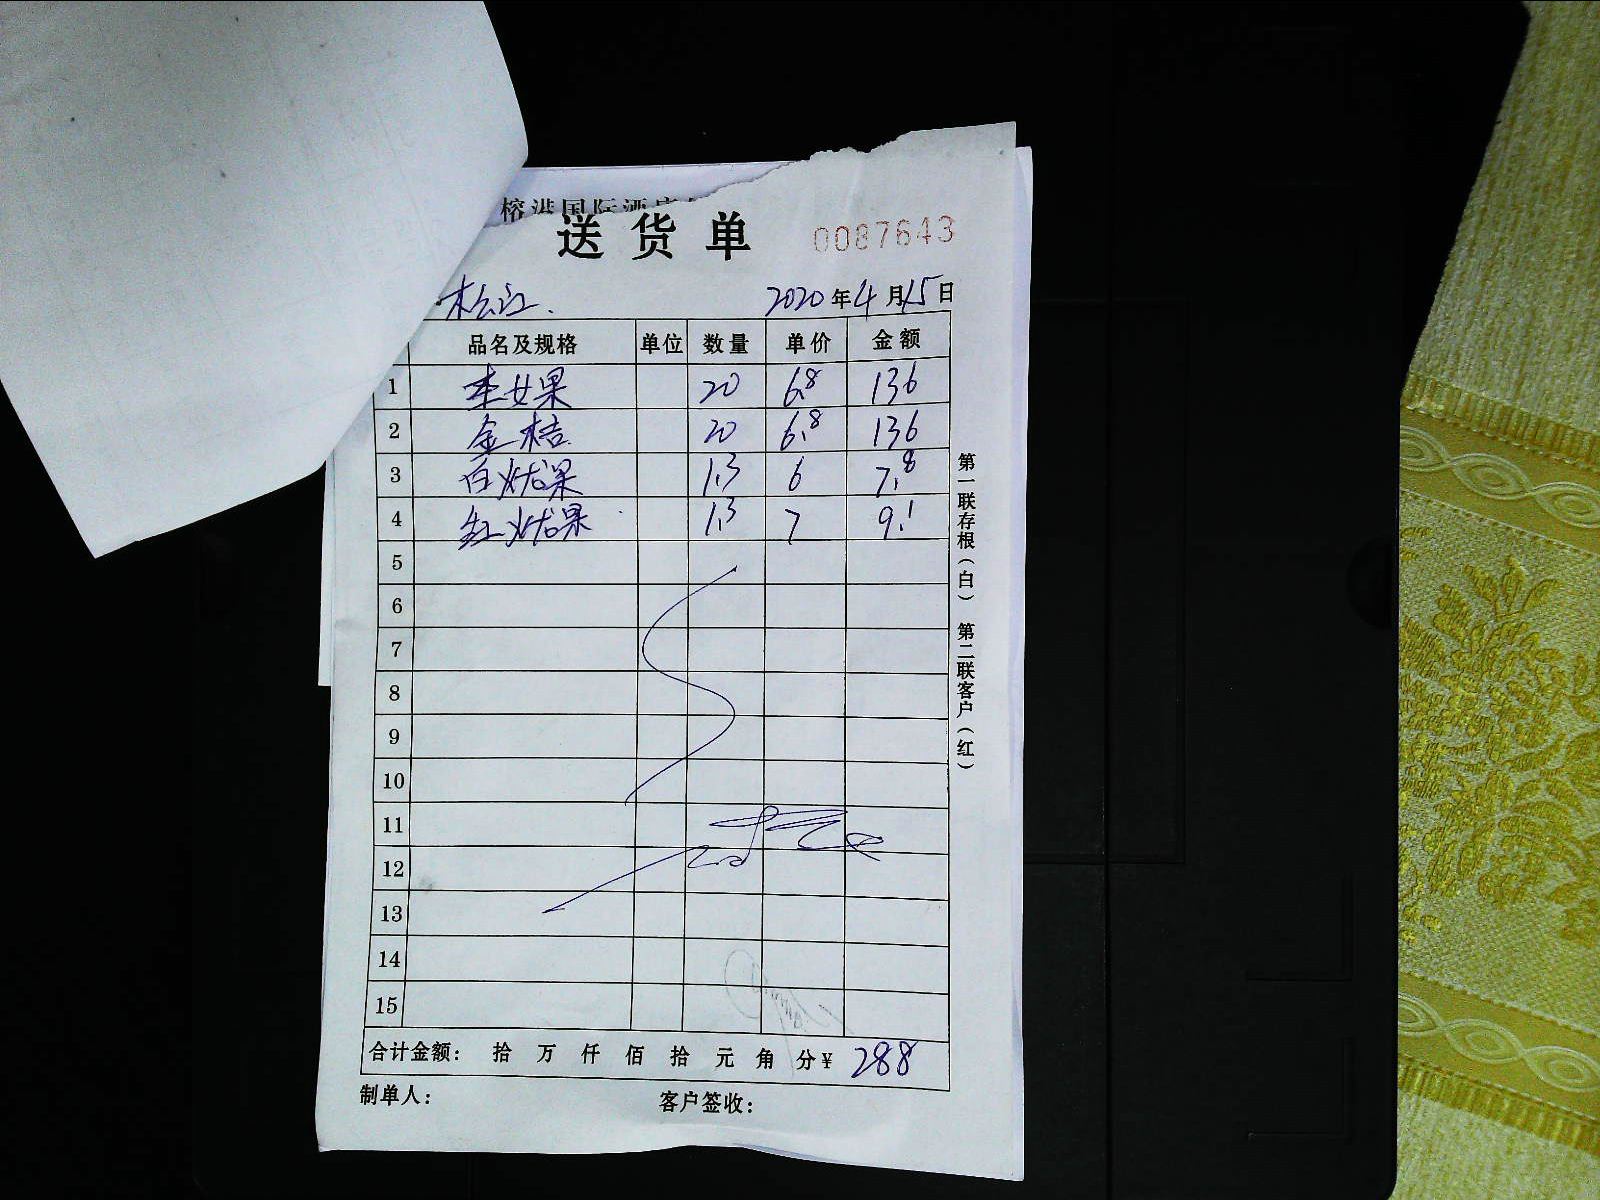 榕港国际酒店
送货单 0087643
松江. 2020年4月15日
品名及规格 单位 数量 单价 金额
1 圣女果 20 6.8 136
2 金桔 20 6.8 136
3 白火龙果 1.3 6 7.8
4 红火龙果 1.3 7 9.1
5
6
7
8
9
10
11
12
13
14
15
合计金额: 拾 万 仟 佰 拾 元 角 分¥ 288
制单人: 客户签收:
第一联存根(白) 第二联客户(红)